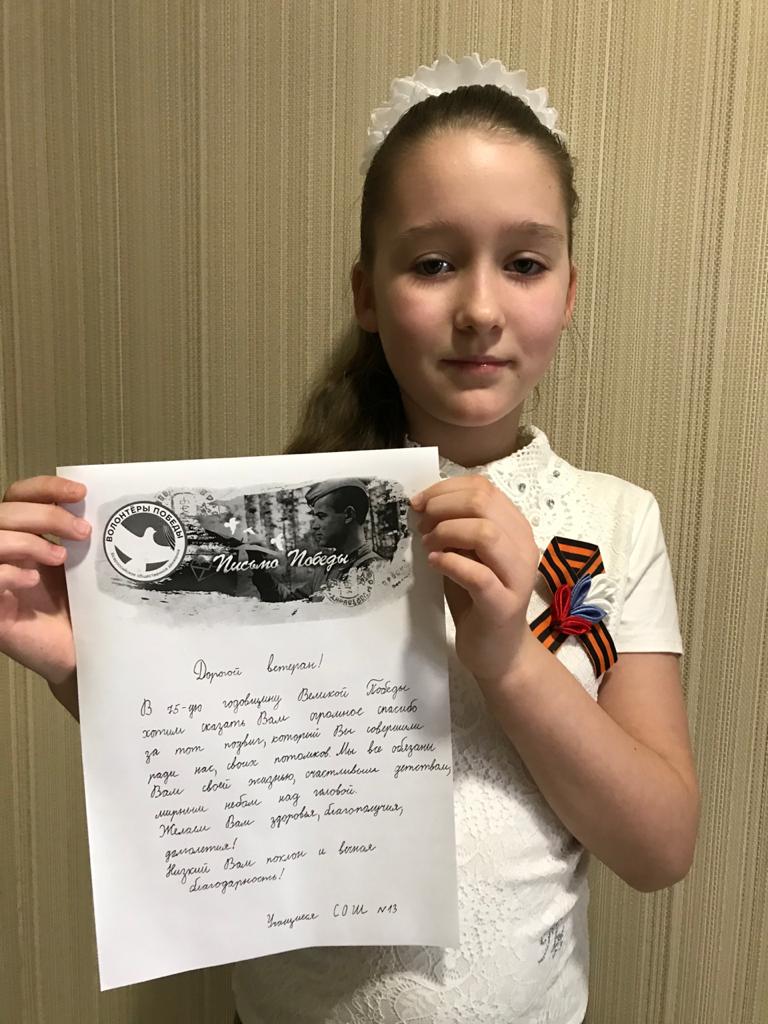 ВОЛОНТЁРЫ ПОБЕДЫ
Письмо Победы
Дорогой ветеран!
В 75-ую годовщину Великой Победы
хотим сказать Вам огромное спасибо
за тот подвиг, который Вы совершили
ради нас, своих потомков. Мы все обязаны
Вам своей жизнью, счастливым детством,
мирным небом над головой.
Желаем Вам здоровья, благополучия,
долголетия!
Низкий Вам поклон и вечная
благодарность!
Учащиеся СОШ №13